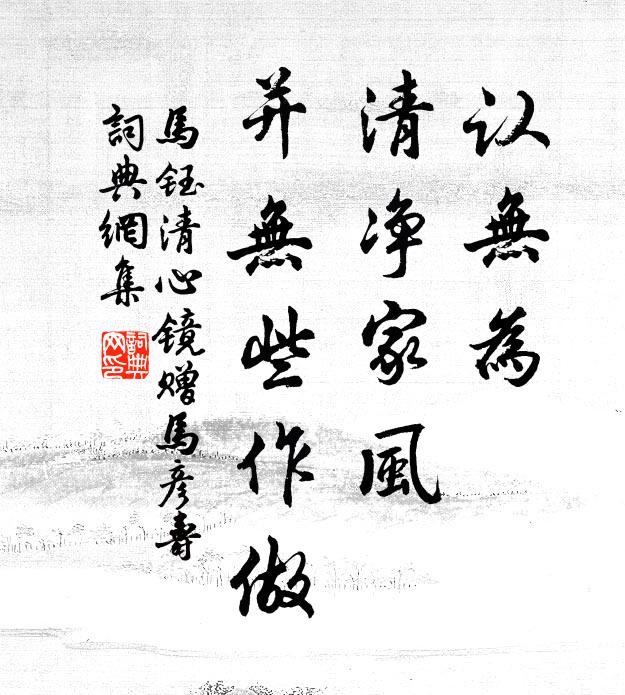 认無為
清净家風
并無些作做
馬鈺清心鏡赠馬彦壽
詞典網集
詞典
网印